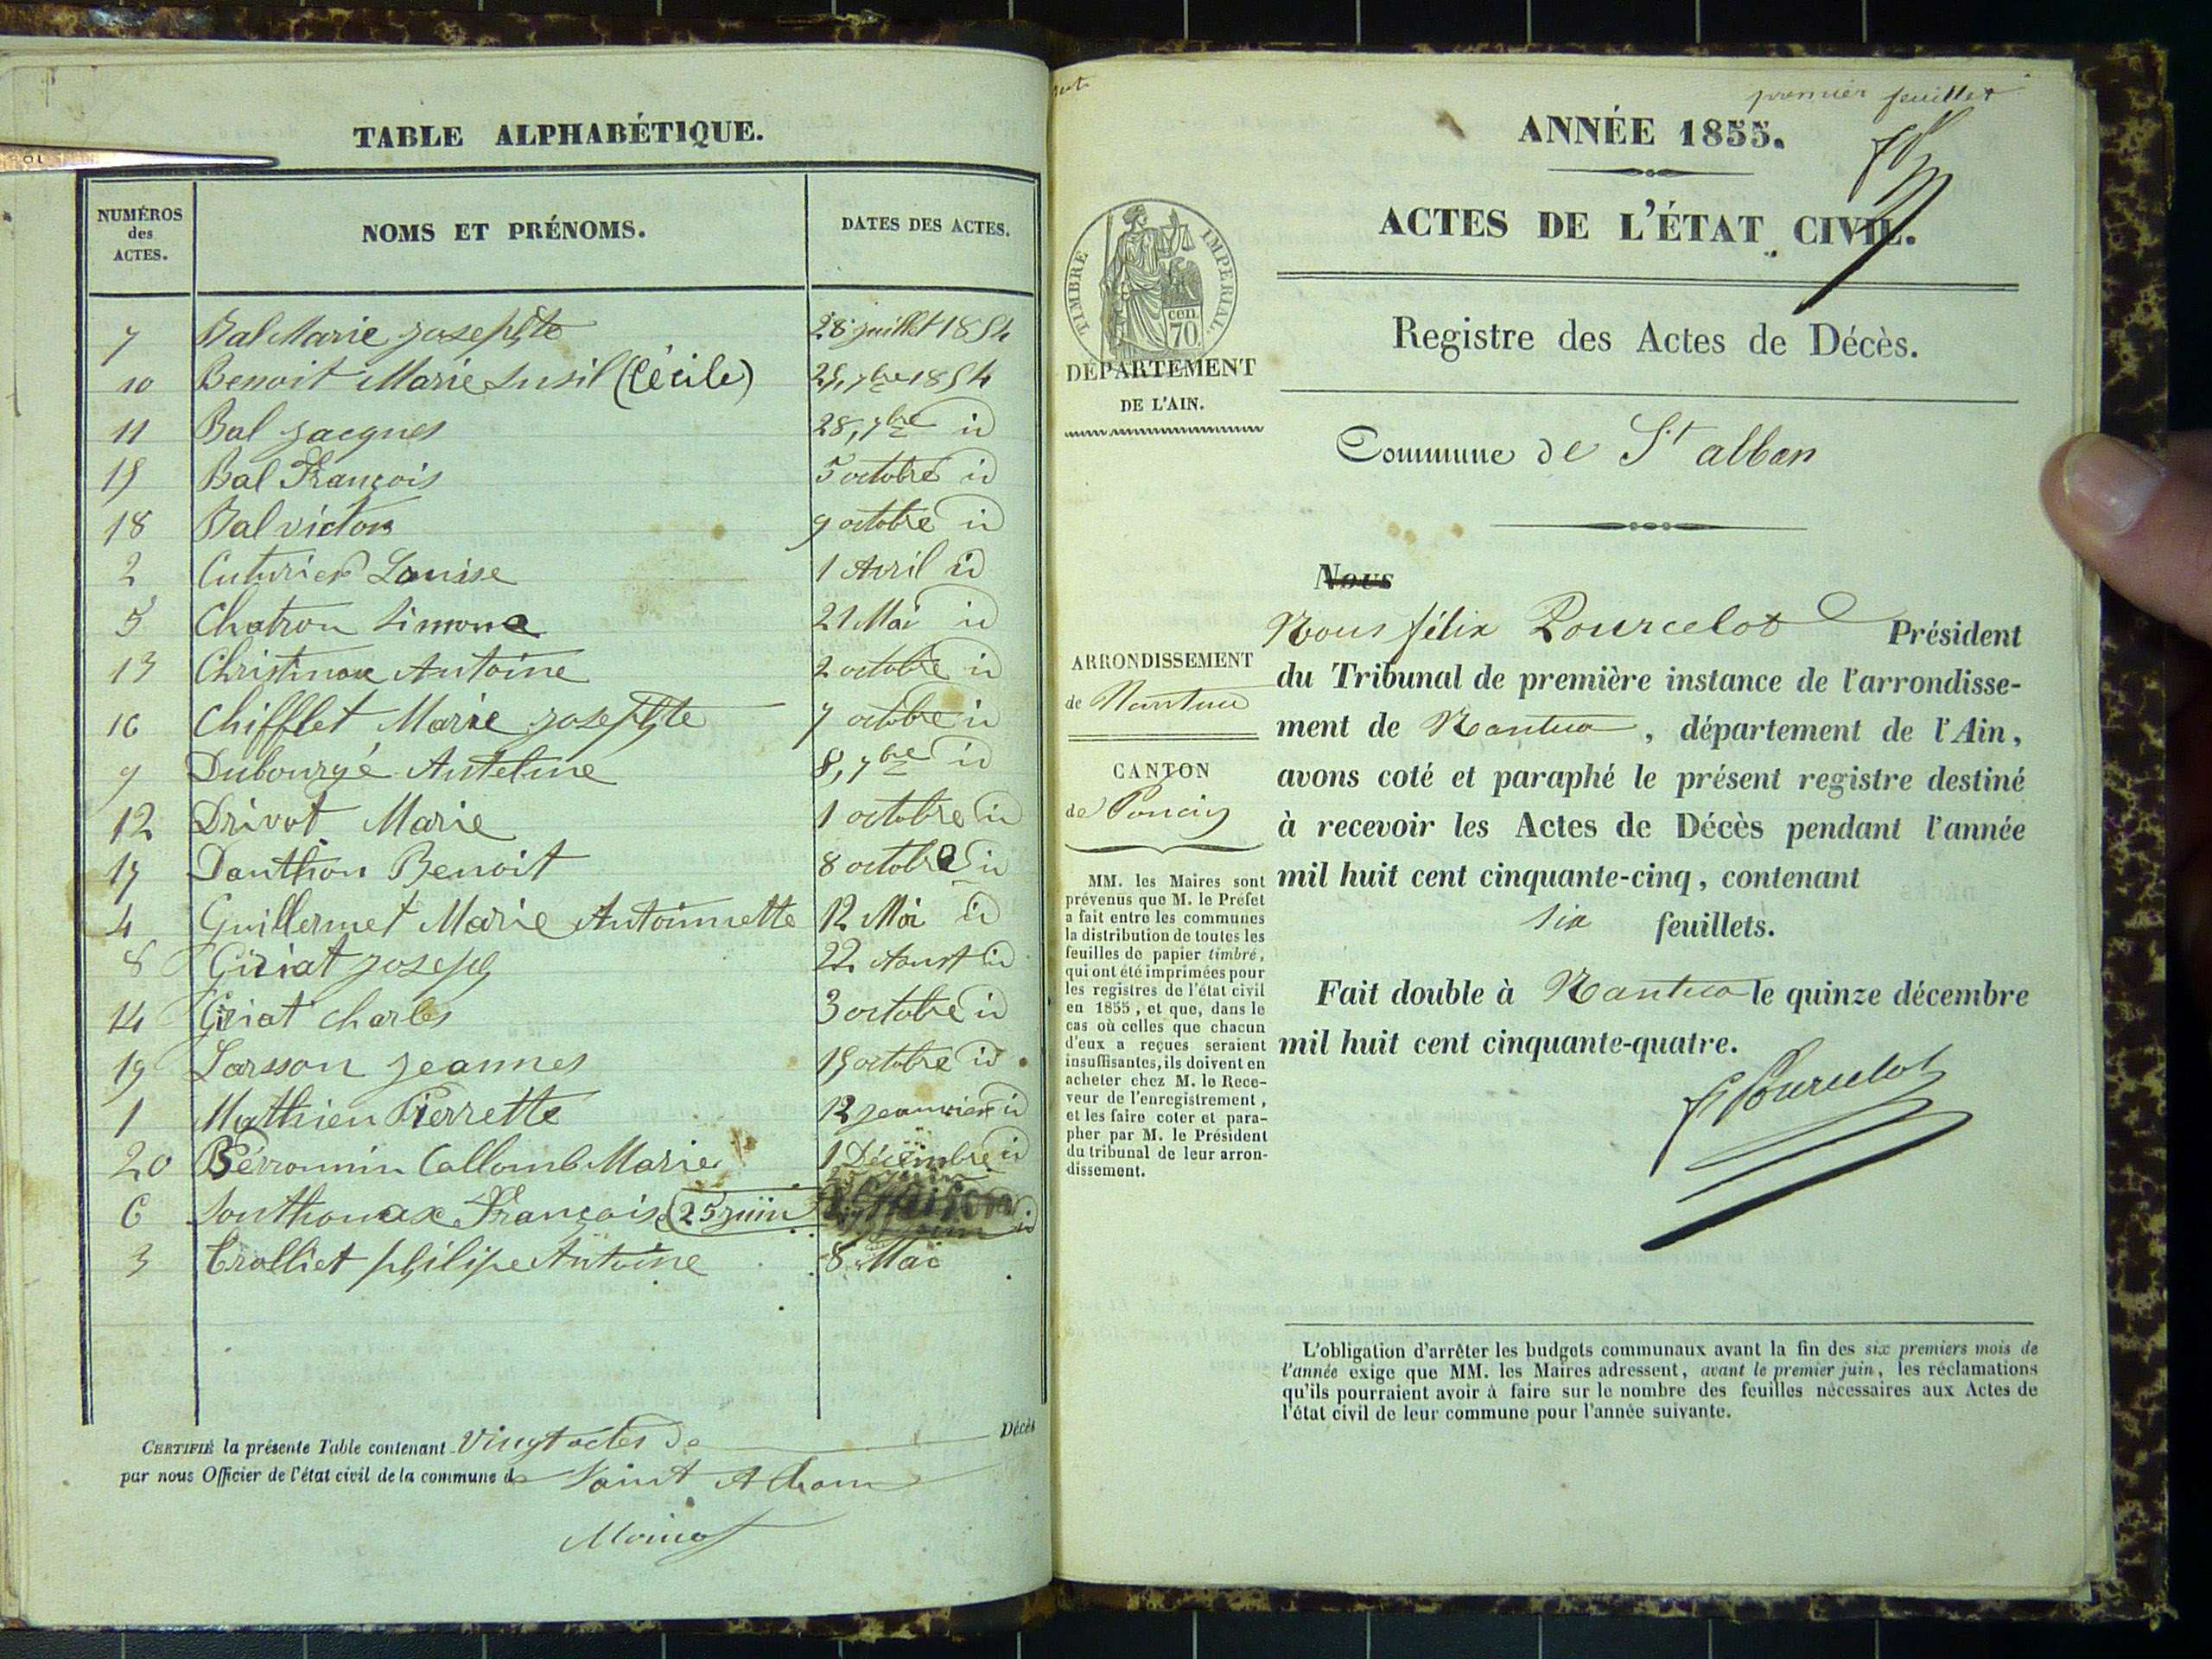 TABLE ALPHABÉTIQUE.
NUMÉROS
des
ACTES.
NOMS ET PRÉNOMS.
DATES DES ACTES.
7 Bal Marie josephte 28 juillet 1854
10 Benoit Marie Susil (Cécile) 25, 7bre 1854
11 Bal jacques 28, 7bre id
15 Bal François 5 octobre id
18 Bal victor 9 octobre id
2 Cuturier Louise 1 Avril id
5 Chatron Simone 21 Mai id
13 Christinax Antoine 2 octobre id
16 Chifflet Marie josephte 7 octobre id
9 Dubourgé Antelme 8, 7bre id
12 Drivot Marie 1 octobre id
17 Danthon Benoit 8 octobre id
4 Guillermet Marie Antoinnette 12 Mai id
8 Giriat joseph 22 Aoust id
14 Giriat charles 3 octobre id
19 Larsson jeannes 15 octobre id
1 Mathieu Pierrette 12 jeanvier id
20 Pérronnin Collomb Marie 1 Décembre id
6 Sonthonax François (25 juin) id
3 Trolliet philipe Antoine 8 Mai
CERTIFIÉ la présente Table contenant Vingt actes de Décès
par nous Officier de l'état civil de la commune de Saint Alban
premier feuillet
ANNÉE 1855.
ACTES DE L'ÉTAT CIVIL.
TIMBRE IMPÉRIAL
70 cen
DÉPARTEMENT
DE L'AIN.
Registre des Actes de Décès.
Commune de St alban
Nous
Nous félix Pourcelot Président
du Tribunal de première instance de l'arrondisse-
ment de Nantua, département de l'Ain,
avons coté et paraphé le présent registre destiné
à recevoir les Actes de Décès pendant l'année
mil huit cent cinquante-cinq, contenant
six feuillets.
Fait double à Nantua le quinze décembre
mil huit cent cinquante-quatre.
F Pourcelot
ARRONDISSEMENT
de Nantua
CANTON
de Poncin
MM. les Maires sont
prévenus que M. le Préfet
a fait entre les communes
la distribution de toutes les
feuilles de papier timbré,
qui ont été imprimées pour
les registres de l'état civil
en 1855, et que, dans le
cas où celles que chacun
d'eux a reçues seraient
insuffisantes, ils doivent en
acheter chez M. le Rece-
veur de l'enregistrement,
et les faire coter et para-
pher par M. le Président
du tribunal de leur arron-
dissement.
L'obligation d'arrêter les budgets communaux avant la fin des six premiers mois de
l'année exige que MM. les Maires adressent, avant le premier juin, les réclamations
qu'ils pourraient avoir à faire sur le nombre des feuilles nécessaires aux Actes de
l'état civil de leur commune pour l'année suivante.